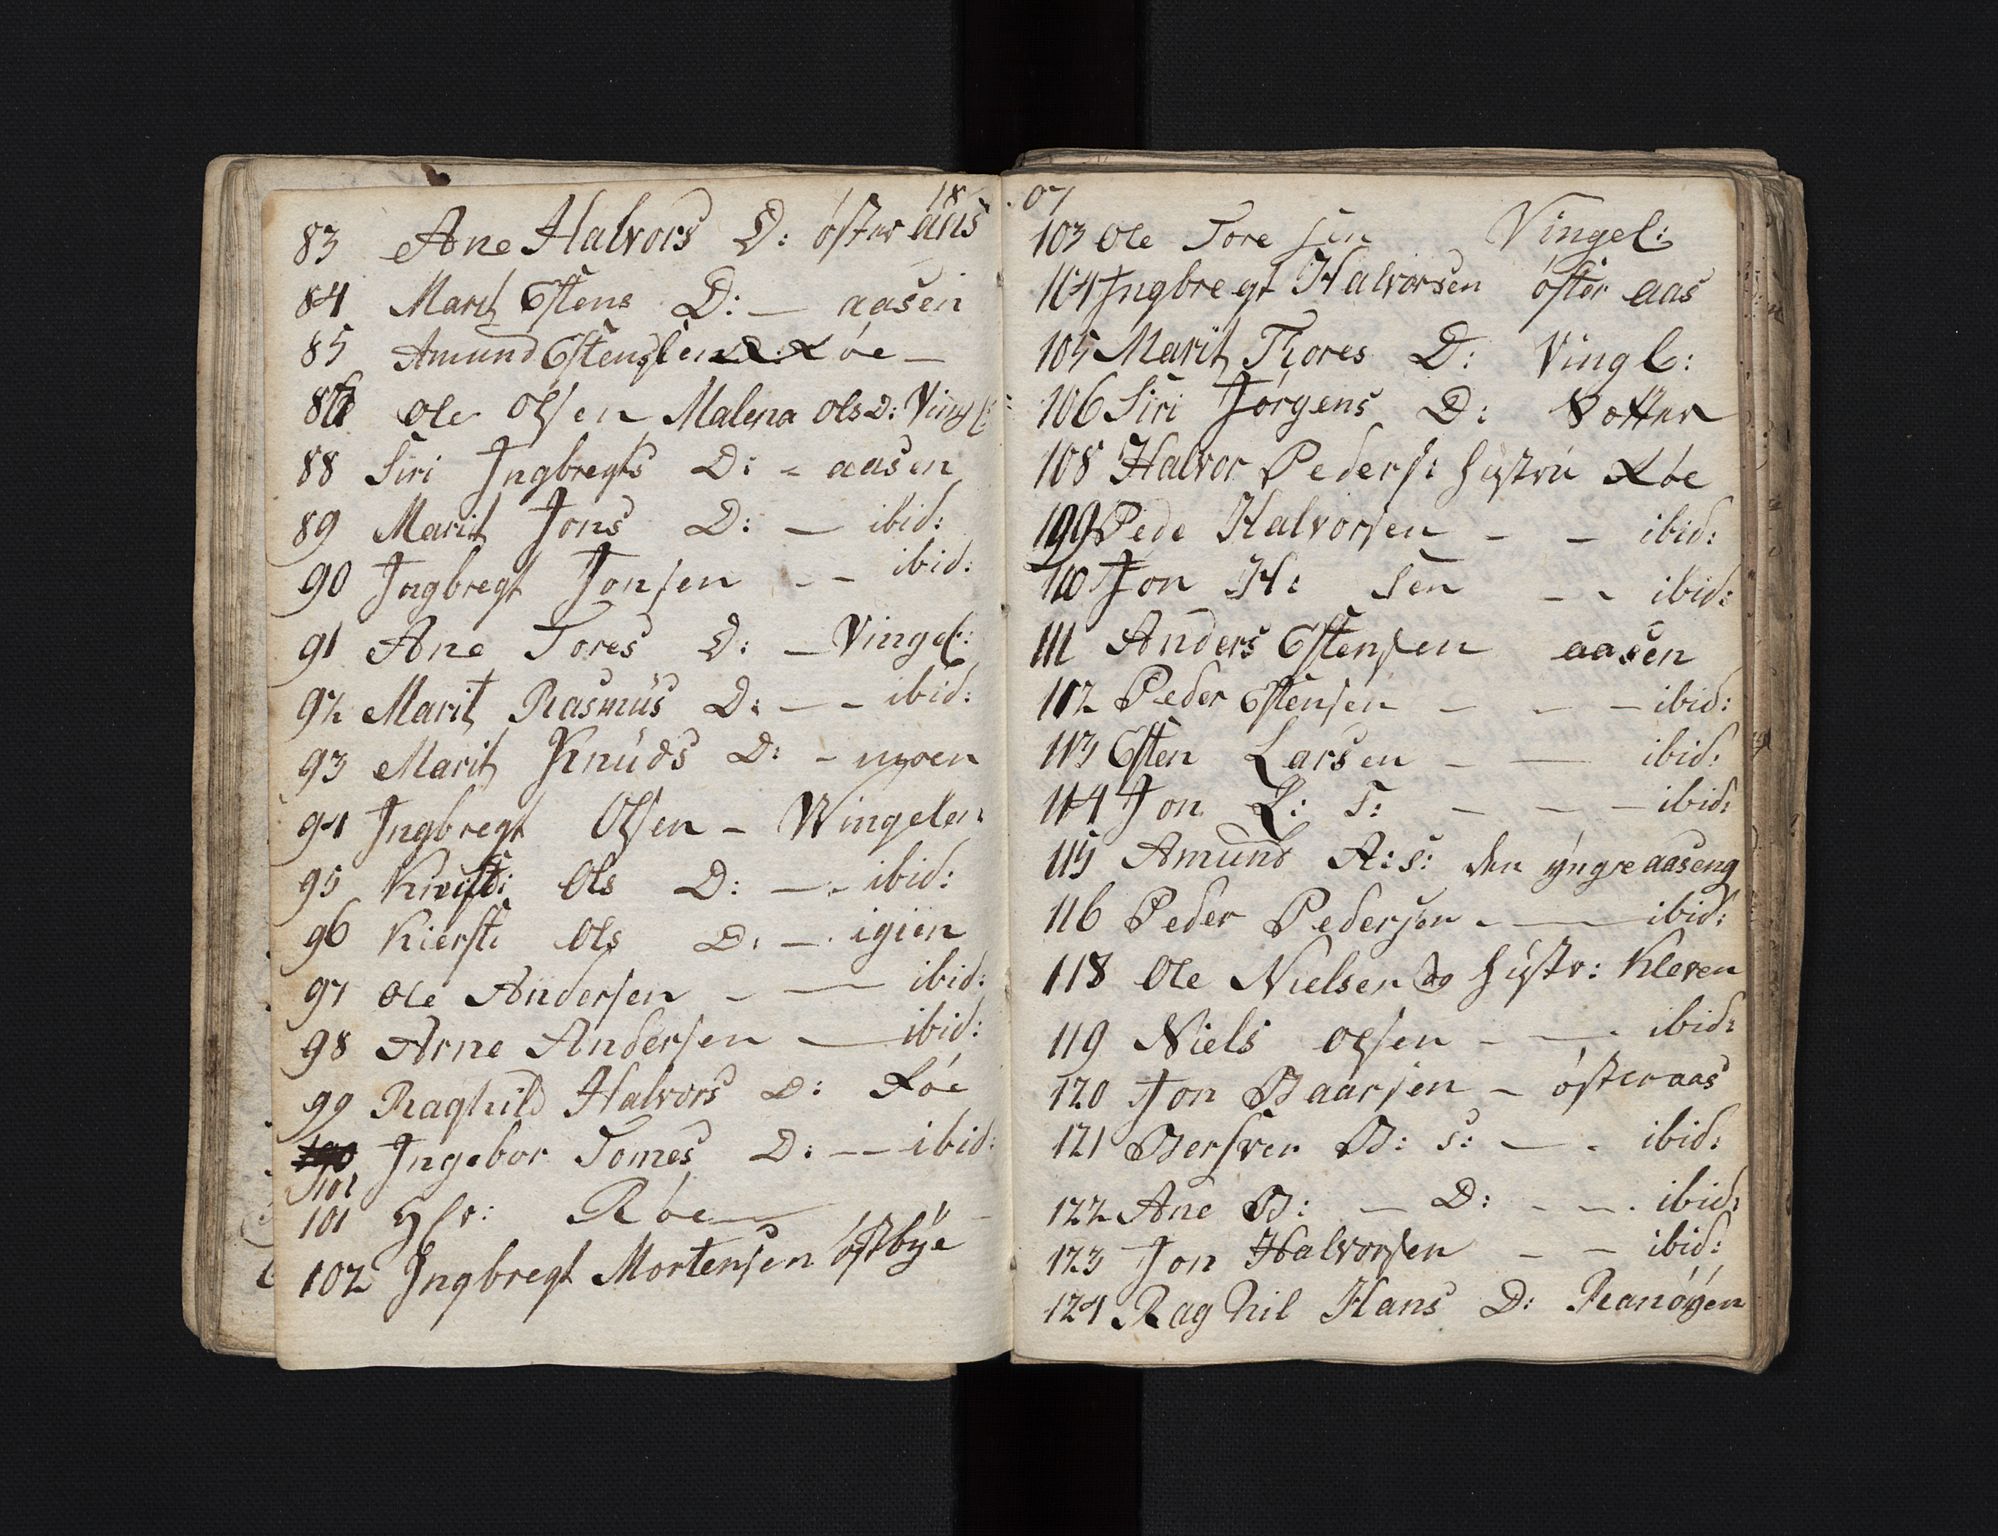 18
83 Ane Halvors D: öster aas
84 Marit Estens D: — aasen
85 Amund Estensen Röe —
Ole Olsen Malena Ols D: Vingl:
88 Siri Ingbregts D: - aasen
89 Marit Jons D: — ibid:
90 Ingbregt Jonsen - - ibid:
91 Ane Tores D: — Vingel:
92 Marit Rasmus D: — - ibid:
93 Marit Knuds D: - moen
94 Ingbregt Olsen - Wingelen
95 Kirsti Ols D: — - ibid:
96 Kiersti Ols D: — . igien
97 Ole Andersen - — ibid:
98 Arne Andersen — ibid:
99 Raghild Halvors D: Röe
Ingebor Tomes D: — — ibid:
101
101 Hr: Röe
102 Ingbregt Mortensen östbÿe
07
103 Ole Toresen Vingel:
104 Ingbregt Halvorsen öster aas
105 Marit Thores D: Vingl:
106 Siri Jörgens D: Potter
108 Halvor Peders: Hustru Röe
109 Pede Halvorsen - - ibid:
110 Jon H: Sen - - ibid:
111 Anders Estensen aasen
112 Peder Estensen - - - ibid:
113 Esten Larsen - — ibid:
114 Jon L: S: - - - ibid:
115 Amund A: S: den ÿngre aaseng
116 Peder Pedersen - — ibid:
118 Ole Nielsen og Hustr: Kleven
119 Niels Olsen - — . ibid:
120 Jon Baarsen - österaas
121 Bersven B: S: — . ibid:
122 Ane B: — D: - - . ibid:
123 Jon Halvorsen - - ibid:
124 Raghil Hans D: Ranöÿen